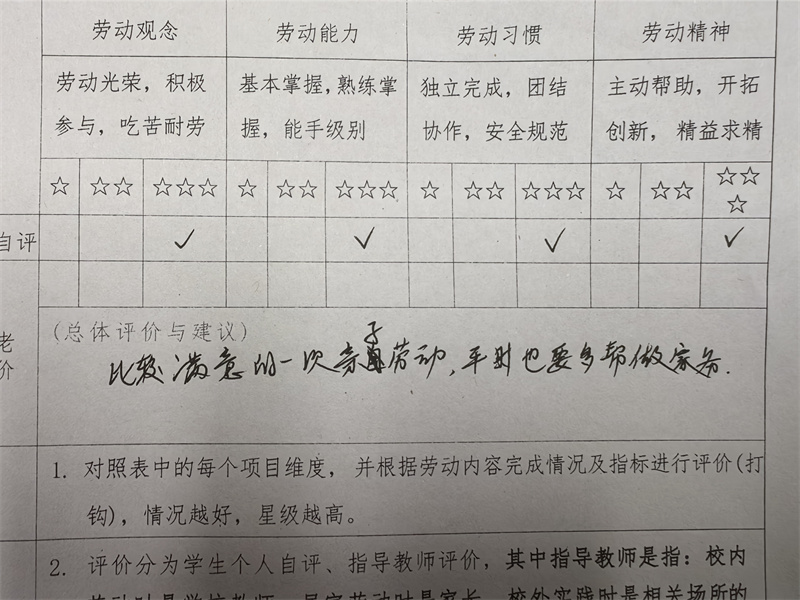 劳动观念 劳动能力 劳动习惯 劳动精神
劳动光荣，积极 基本掌握，熟练掌 独立完成，团结 主动帮助，开拓
参与，吃苦耐劳 握，能手级别 协作，安全规范 创新，精益求精
☆ ☆☆ ☆☆☆ ☆ ☆☆ ☆☆☆ ☆ ☆☆ ☆☆☆ ☆ ☆☆ ☆☆
☆
自评 ✓ ✓ ✓ ✓
老
价
(总体评价与建议)
比较满意的一次亲子劳动，平时也要多帮做家务.
1. 对照表中的每个项目维度，并根据劳动内容完成情况及指标进行评价(打
钩)，情况越好，星级越高。
2. 评价分为学生个人自评、指导教师评价，其中指导教师是指：校内
劳动时是学校教师，居家劳动时是家长，校外实践时是相关场所的